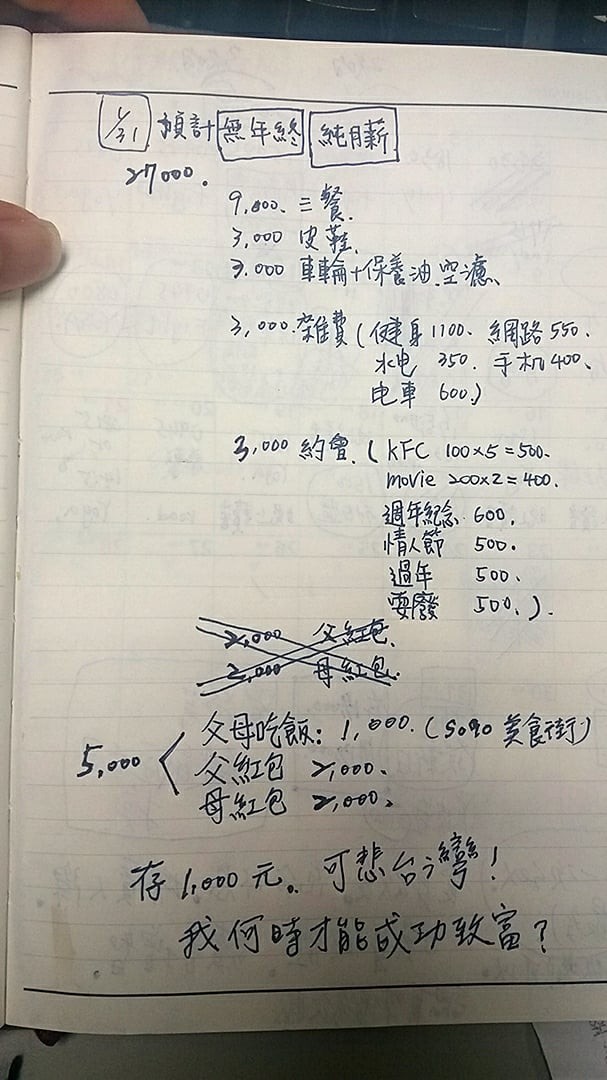 1/31 預計 無年終 純月薪
27000.
9,000. 三餐.
3,000 皮鞋.
3.000 車輪+保養油.空濾、
3,000.雜費(健身1100. 網路550.
水电 350. 手机400、
电車 600.)
3,000 約會.(KFC 100x5=500.
movie 200x2=400.
週年紀念 600.
情人節 500.
過年 500、
耍廢 500、).
2,000 父紅包.
2,000 母紅包.
父母吃飯:1,000.(Sogo 美食街)
5,000 < 父紅包 2,000、
母紅包 2,000、
存1,000元。可悲台灣!
我何時才能成功致富?